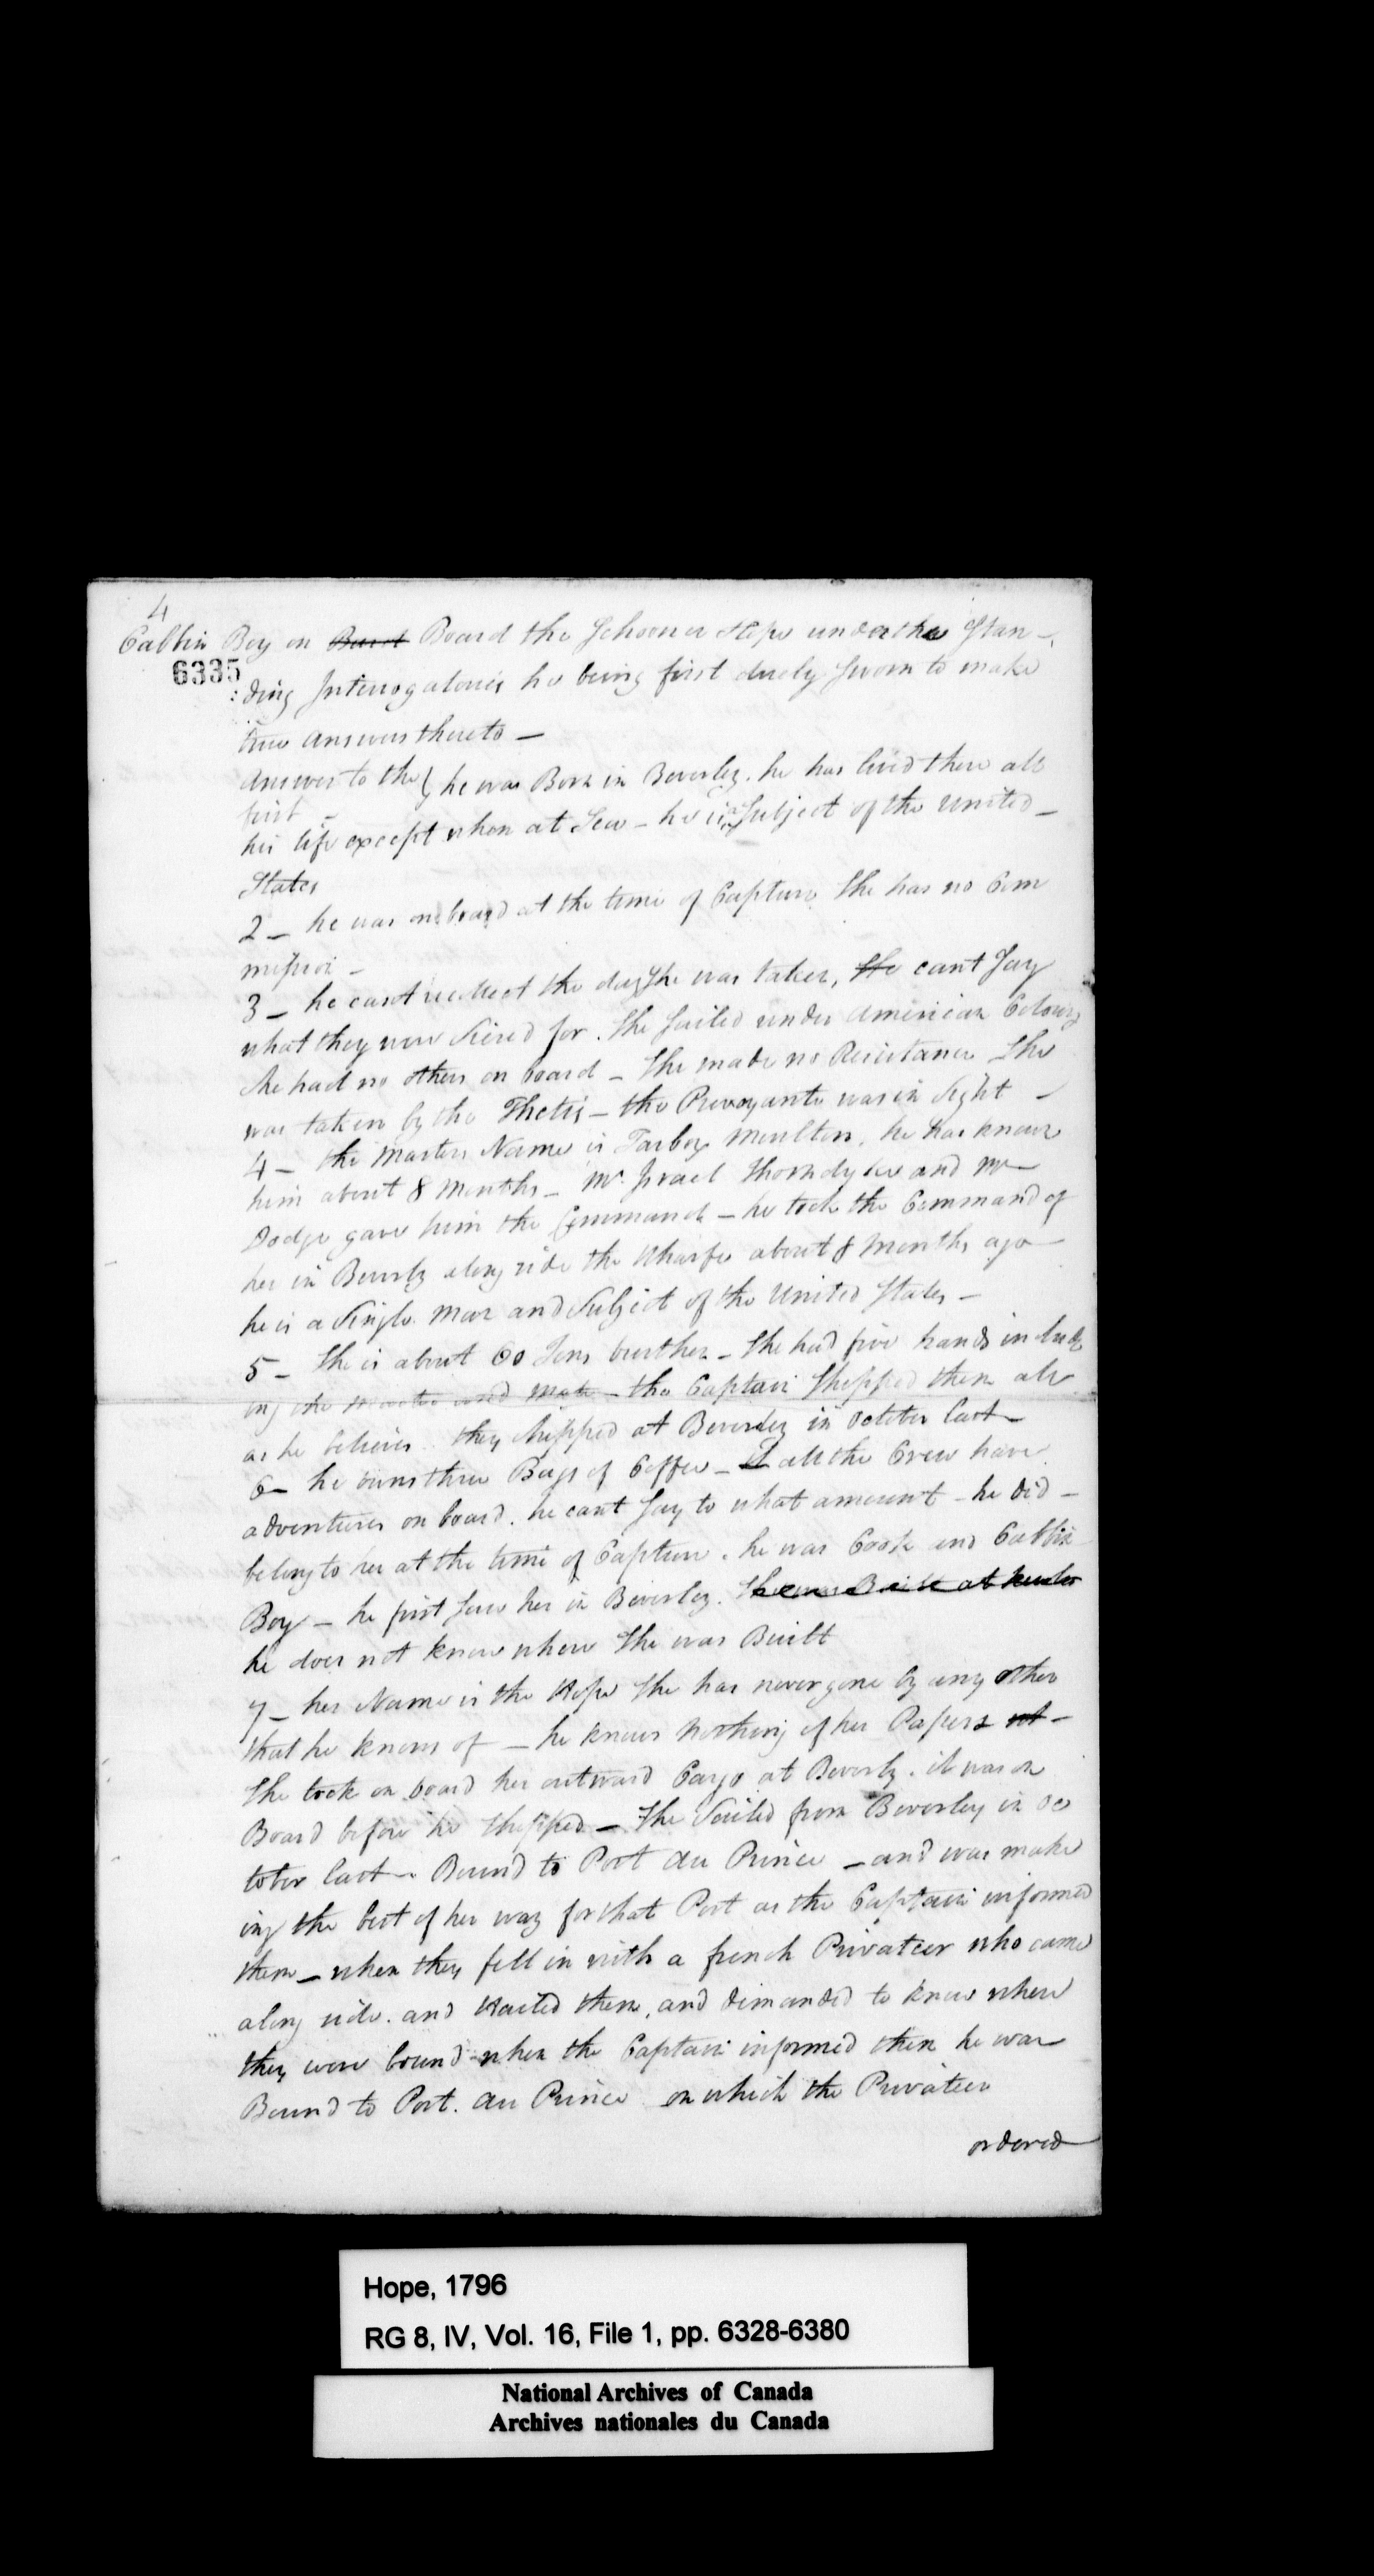 4
Cabbin Boy on Board Board the Schooner Hope under the Stan-
6335
:ding Interrogatories he being first duely Sworn to make
true answers thereto —
answer to the } he was Born in Beverley. he has lived there all
first —
his life except when at Sea — he is a Subject of the United —
States
2 — he was on board at the time of Capture She has no Com
mission —
3 — he cant recollect the day She was taken, He cant Say
what they were Seized for. She Sailed under American Colours
She had no others on board — She made no Resistance She
was taken by the Thetis — the Prevoyante was in Sight —
4 — the Masters Name is Tarbox Moulton, he has known
him about 8 Months — Mr. Israel Thorndyke and Mr
Dodge gave him the Command — he took the Command of
her in Beverly along side the Wharfe about 8 Months ago
he is a Single Man and Subject of the United States —
5 — She is about 60 Tons burthen — She had five hands includ
ing the Master and Mate — the Captain Shipped them all
as he believes they Shipped at Beverley in October last —
6 — he owns three Bags of Coffee — all the Crew have
adventures on board. he cant Say to what amount — he did —
belong to her at the time of Capture. he was Cook and Cabbin
Boy — he first Saw her in Beverley. She was Built at
he does not know where She was Built
7 — her Name is the Hope She has never gone by any other
that he knows of — he knows Nothing of her Papers —
She took on board her outward Cargo at Beverly. it was on
Board before he Shipped — She Sailed from Beverley in Oc
tober last — Bound to Port au Prince — and was make
ing the best of her way for that Port as the Captain informed
them — when they fell in with a french Privateer who came
along side. and Hailed them, and demanded to know where
they were bound when the Captain informed them he was
Bound to Port. au Prince on which the Privateer
ordered
Hope, 1796
RG 8, IV, Vol. 16, File 1, pp. 6328-6380
National Archives of Canada
Archives nationales du Canada